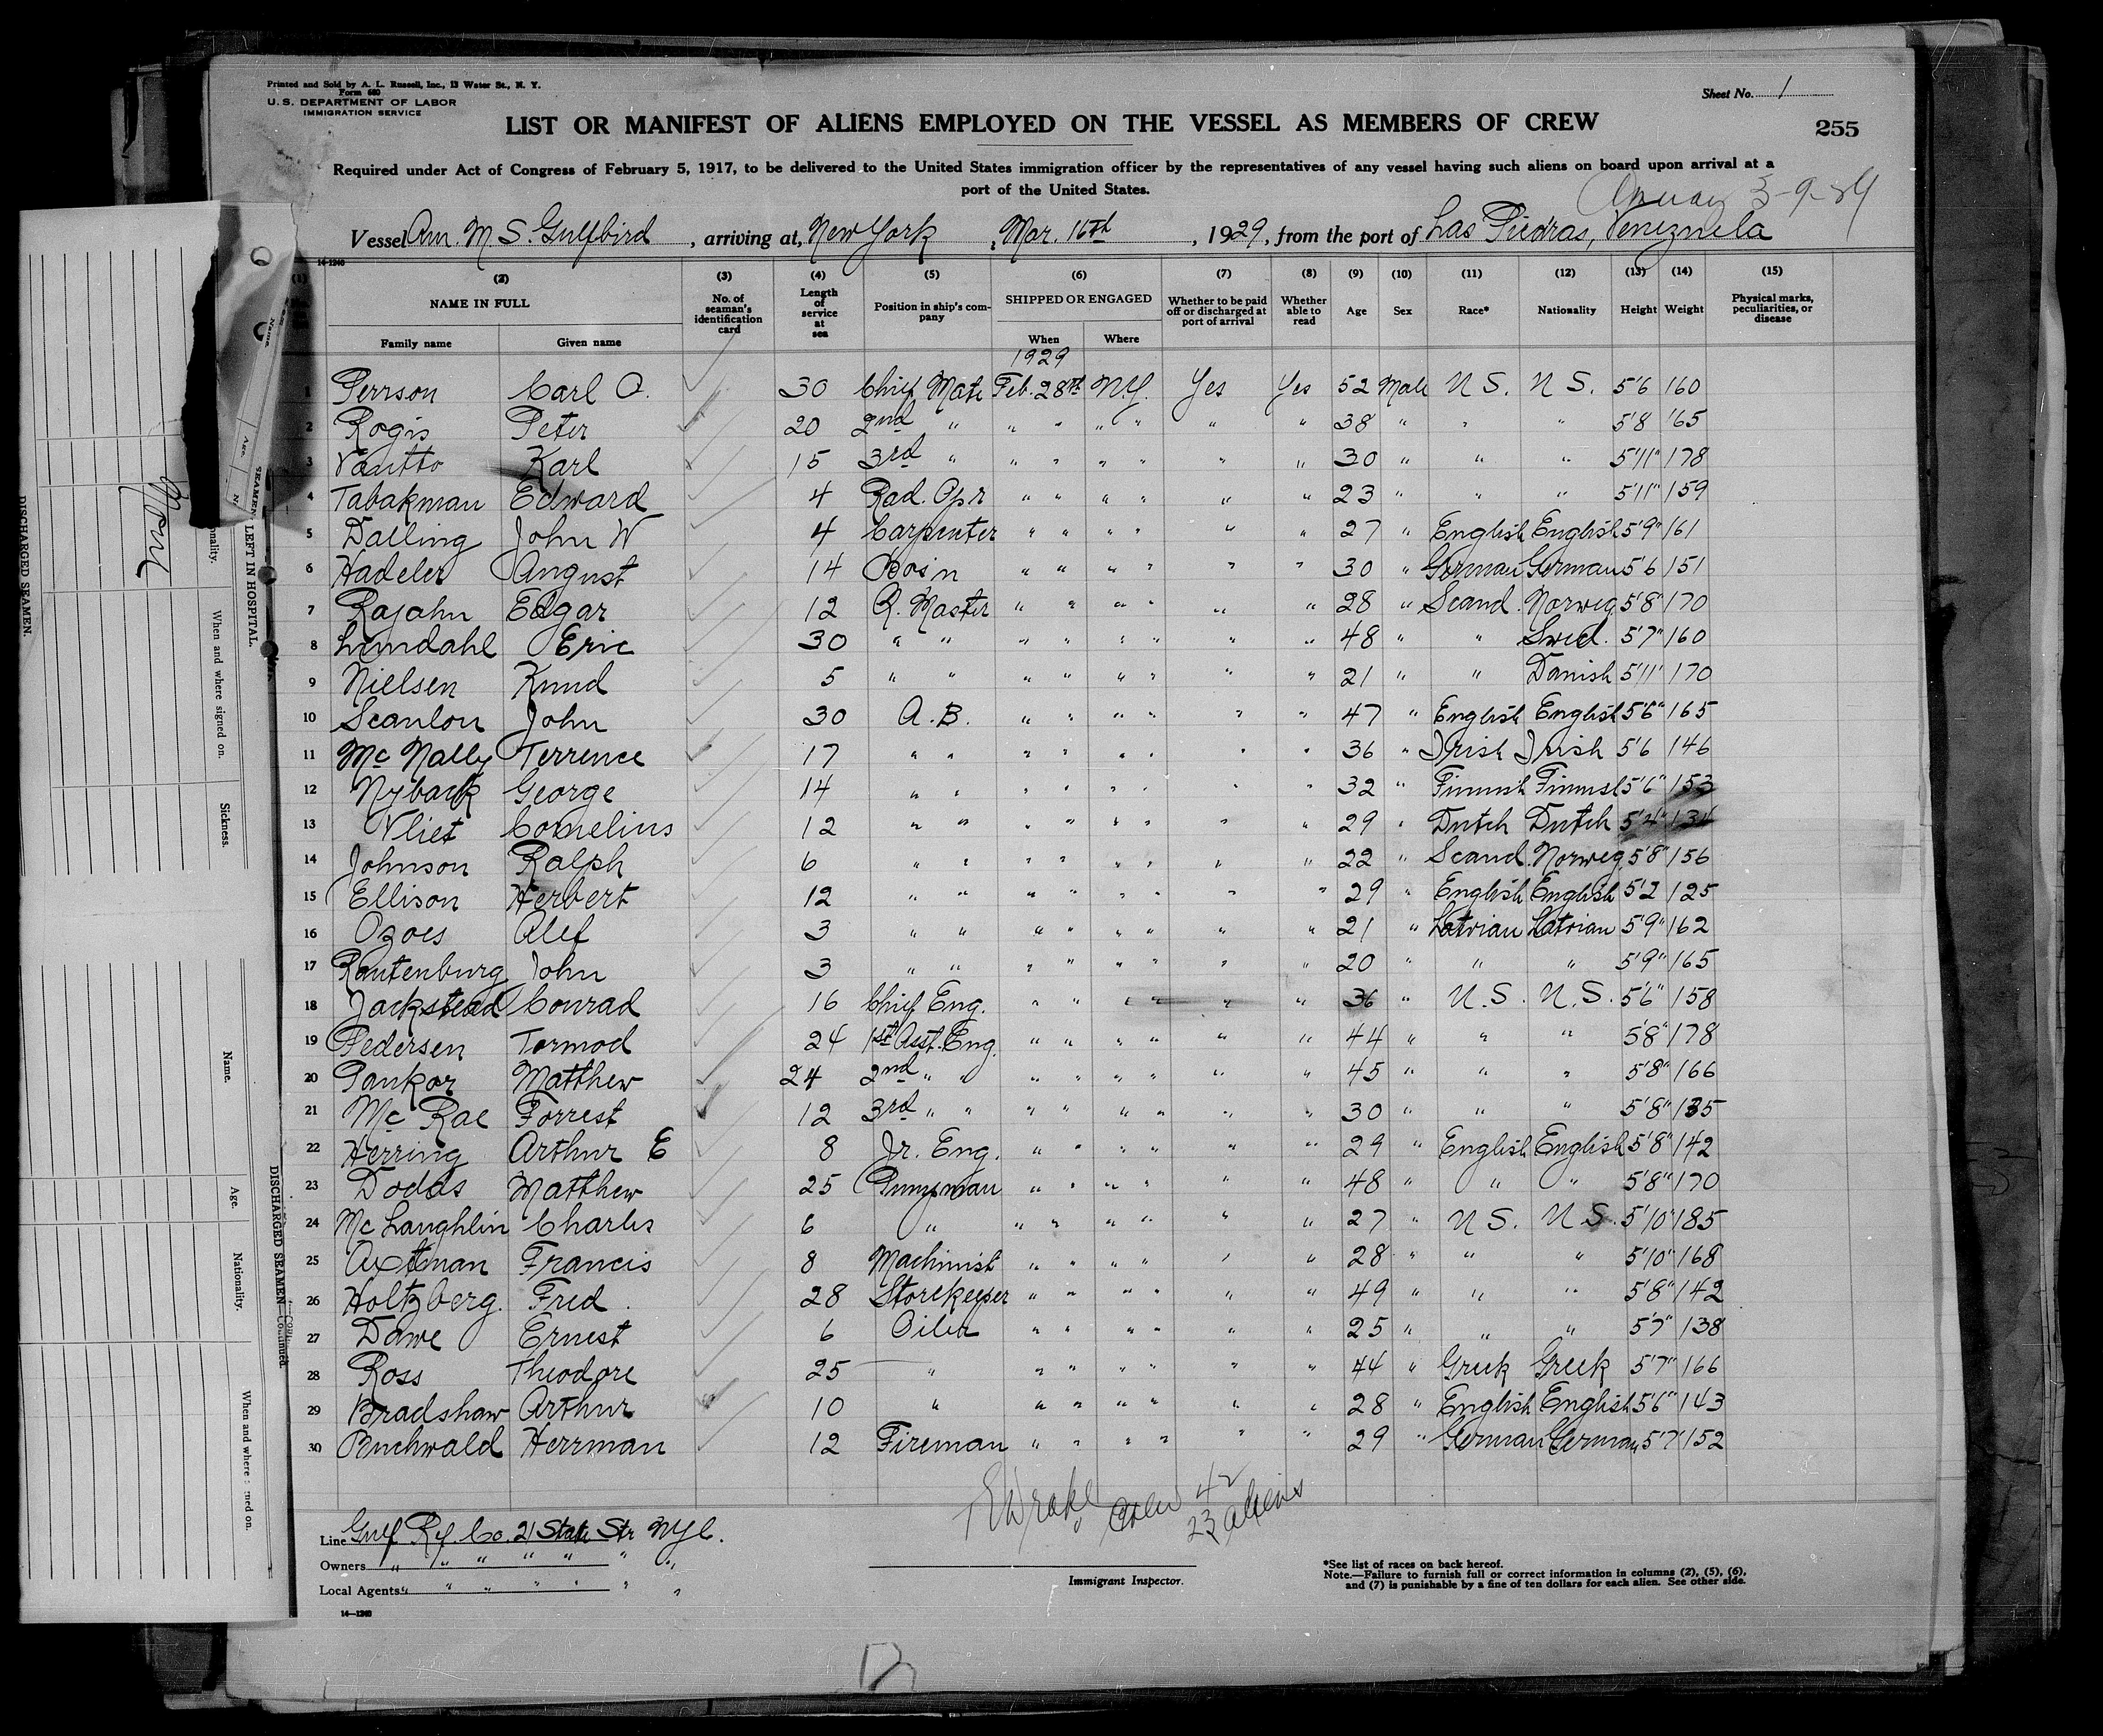 Printed and Sold by A. L. Russell, Inc., 13 Water St., N. Y.
Form 680
U. S. DEPARTMENT OF LABOR
IMMIGRATION SERVICE
Sheet No. 1
LIST OR MANIFEST OF ALIENS EMPLOYED ON THE VESSEL AS MEMBERS OF CREW
255
Required under Act of Congress of February 5, 1917, to be delivered to the United States immigration officer by the representatives of any vessel having such aliens on board upon arrival at a
port of the United States.
3-9-29
Vessel Am. M S. Gulfbird, arriving at, New York, Mar. 16th, 1929, from the port of Las Piedras, Venezuela
14-1240
(1) (2) (3) (4) (5) (6) (7) (8) (9) (10) (11) (12) (13) (14) (15)
NAME IN FULL Family name Given name No. of seaman's identification card Length of service at sea Position in ship's company SHIPPED OR ENGAGED When Where Whether to be paid off or discharged at port of arrival Whether able to read Age Sex Race* Nationality Height Weight Physical marks, peculiarities, or disease
1929
1 Perrson Carl O. 30 Chief Mate Feb. 28th N.Y. Yes Yes 52 Male U S. U S. 5'6 160
2 Rogis Peter 20 2nd " " " " " " " 38 " " " 5'8 165
3 Vantto Karl 15 3rd " " " " " " " 30 " " " 5'11" 178
4 Tabakman Edward 4 Rad. Opr " " " " " " 23 " " " 5'11" 159
5 Dalling John W 4 Carpenter " " " " " " 27 " English English 5'9" 161
6 Hadeler August 14 Bos'n " " " " " " 30 " German German 5'6 151
7 Rojahn Edgar 12 Q. Master " " " " " " 28 " Scand. Norweg. 5'8" 170
8 Lundahl Eric 30 " " " " " " " " 48 " " Swed. 5'7" 160
9 Nielsen Knud 5 " " " " " " " " 21 " " Danish 5'11" 170
10 Scanlon John 30 A.B. " " " " " " 47 " English English 5'6" 165
11 Mc Nally Terrence 17 " " " " " " " " 36 " Irish Irish 5'6 146
12 Nyback George 14 " " " " " " " " 32 " Finnish Finnish 5'6" 153
13 Vliet Cornelius 12 " " " " " " " " 29 " Dutch Dutch 5'4" 134
14 Johnson Ralph 6 " " " " " " " " 22 " Scand. Norweg. 5'8" 156
15 Ellison Herbert 12 " " " " " " " " 29 " English English 5'2 125
16 Ozoes Alef 3 " " " " " " " " 21 " Latvian Latvian 5'9" 162
17 Rautenburg John 3 " " " " " " " " 20 " " " 5'9" 165
18 Jackstead Conrad 16 Chief Eng. " " " " " " 36 " U.S. U.S. 5'6" 158
19 Pedersen Tormod 24 1st Asst. Eng. " " " " " " 44 " " " 5'8" 178
20 Pankor Matthew 24 2nd " " " " " " " " 45 " " " 5'8" 166
21 Mc Rae Forrest 12 3rd " " " " " " " " 30 " " " 5'8" 135
22 Herring Arthur E 8 Jr. Eng. " " " " " " 29 " English English 5'8" 142
23 Dodds Matthew 25 Pumpman " " " " " " 48 " " " 5'8" 170
24 Mc Laughlin Charles 6 " " " " " " " 27 " U S. U S. 5'10" 185
25 Axtman Francis 8 Machinist " " " " " " 28 " " " 5'10" 168
26 Holtzberg. Fred. 28 Storekeeper " " " " " " 49 " " " 5'8" 142
27 Dawe Ernest 6 Oiler " " " " " " 25 " " " 5'7" 138
28 Ross Theodore 25 " " " " " " " 44 " Greek Greek 5'7" 166
29 Bradshaw Arthur 10 " " " " " " " 28 " English English 5'6" 143
30 Buchwald Herrman 12 Fireman " " " " " " 29 " German German 5'7 152
Crew 42
23 aliens
Line Gulf Rf. Co. 21 State Str NYC.
Owners " " " " " " "
Local Agents " " " " " " "
14-1240
Immigrant Inspector.
*See list of races on back hereof.
Note.—Failure to furnish full or correct information in columns (2), (5), (6),
and (7) is punishable by a fine of ten dollars for each alien. See other side.
DISCHARGED SEAMEN.
SEAMEN LEFT IN HOSPITAL.
Name.
Age.
When and where signed on.
Sickness.
DISCHARGED SEAMEN—Continued.
Name.
Age.
Nationality.